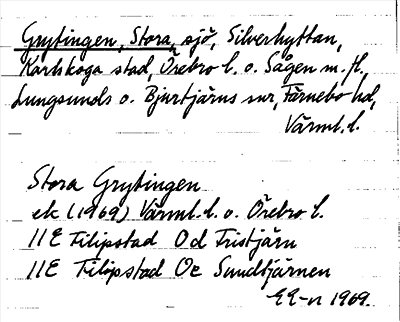 Grytingen, Stora, sjö, Silverhyttan,
Karlskoga stad, Örebro l. o. Sågen m. fl.,
Lungsunds o. Bjurtjärns snr, Färnebo hd,
Värml. l.
Stora Grytingen
ek (1969) Värml. l. o. Örebro l.
11E Filipstad 0d Tristjärn
11E Filipstad 0e Sundtjärnen
1969.